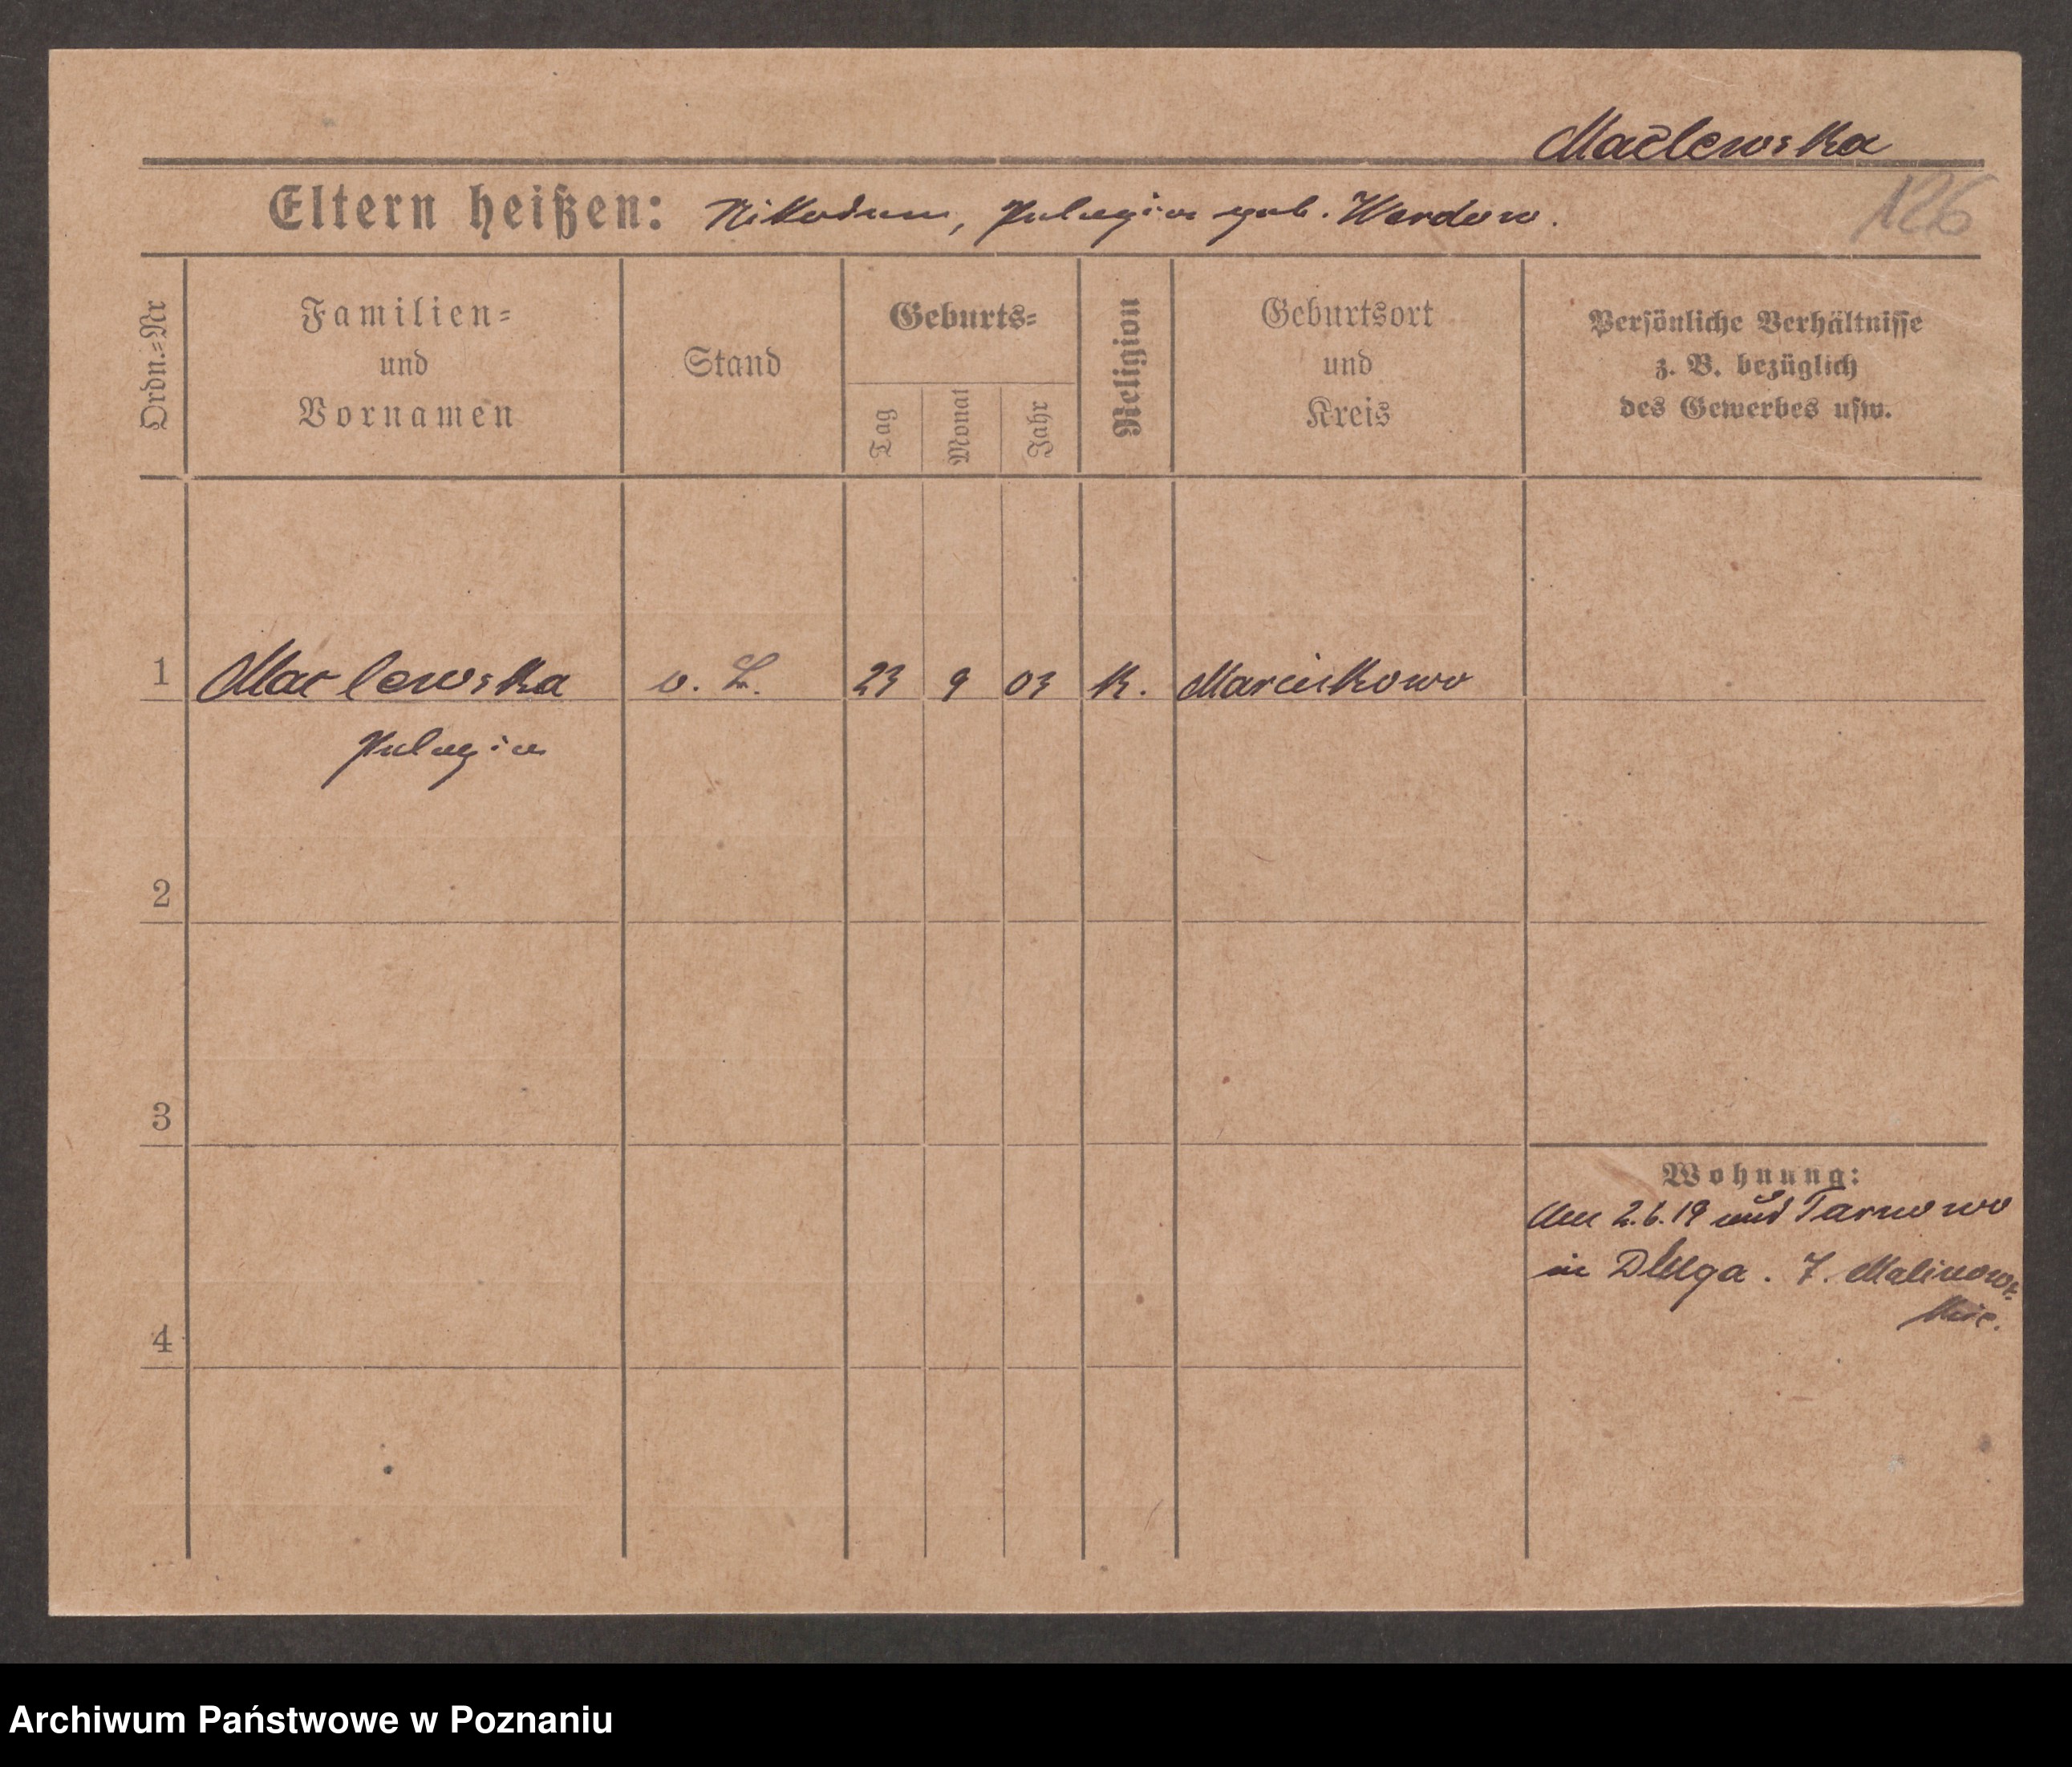 Maclewska
Eltern heißen: Nikodem, Pelagia geb. Werdow.
126
Ordn.=Nr
Familien=
und
Vornamen
Stand
Geburts=
Tag
Monat
Jahr
Religion
Geburtsort
und
Kreis
Persönliche Verhältnisse
z. B. bezüglich
des Gewerbes usw.
1 Maclewska o. L. 23 9 03 K. Marcinkowo
Pelagia
2
3
Wohnung:
Am 2.6.19 aus Tarnowo
in Dluga. 7. Malinows-
4
Archiwum Państwowe w Poznaniu